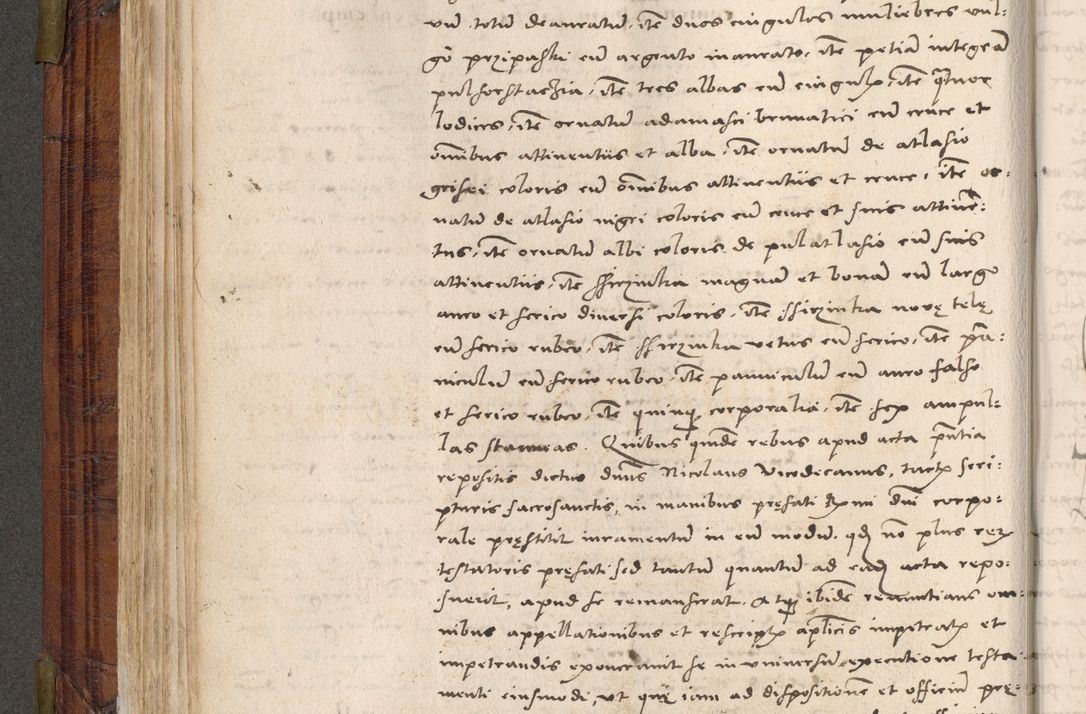 um totum deauratum, itē duos cingulos muliebres vul:
go przipaski cū argento inaurato, itē petiā integrā
pulhorstachia, itē tres albas cū cingulis, itē quatuor
lodices, itē ornatū adamasci brunatici cū cruce et
oībus attinentiis et alba, itē ornatū de atlasio
grisei coloris cū omībus attinentiis et cruce, itē or:
natū de atlasio nigri coloris cū cruce et suis attinē:
tiis, itē ornatū albi coloris de pulatlasio cū suis
attinentiis, itē shirzinka magnā et bonā cū largo
auro et serico diversi coloris, itē shirzinka novę telę
cū serico rubeo, itē shirzinka vetus cū serico, itē pā:
niculū cū serico rubeo, itē panniculū cū auro falso
et serico rubeo, itē quinq corporalia, itē sex ampul:
las stanneas. Quibus quidē rebus apud acta pn̄tia
repositis dictus dn̄us Nicolaus Vicedecanus, tactis scri:
pturis sacrosanctis, in manibus pręfati Rmi dn̄i corpo:
rale pręstitit iuramentū in eū modū, qd nō plus rerū
testatoris pręfati sed tantū quantū ad eadē acta repo:
suerit, apud se remanserat. Atq ibidē renuntians om:
nibus appellationibus et rescriptis aplicis impetratis et
impetrandis exoneravit se in universū executione testa
menti eiusmodi, ut quę iam ad dispositionē et officiū prę: